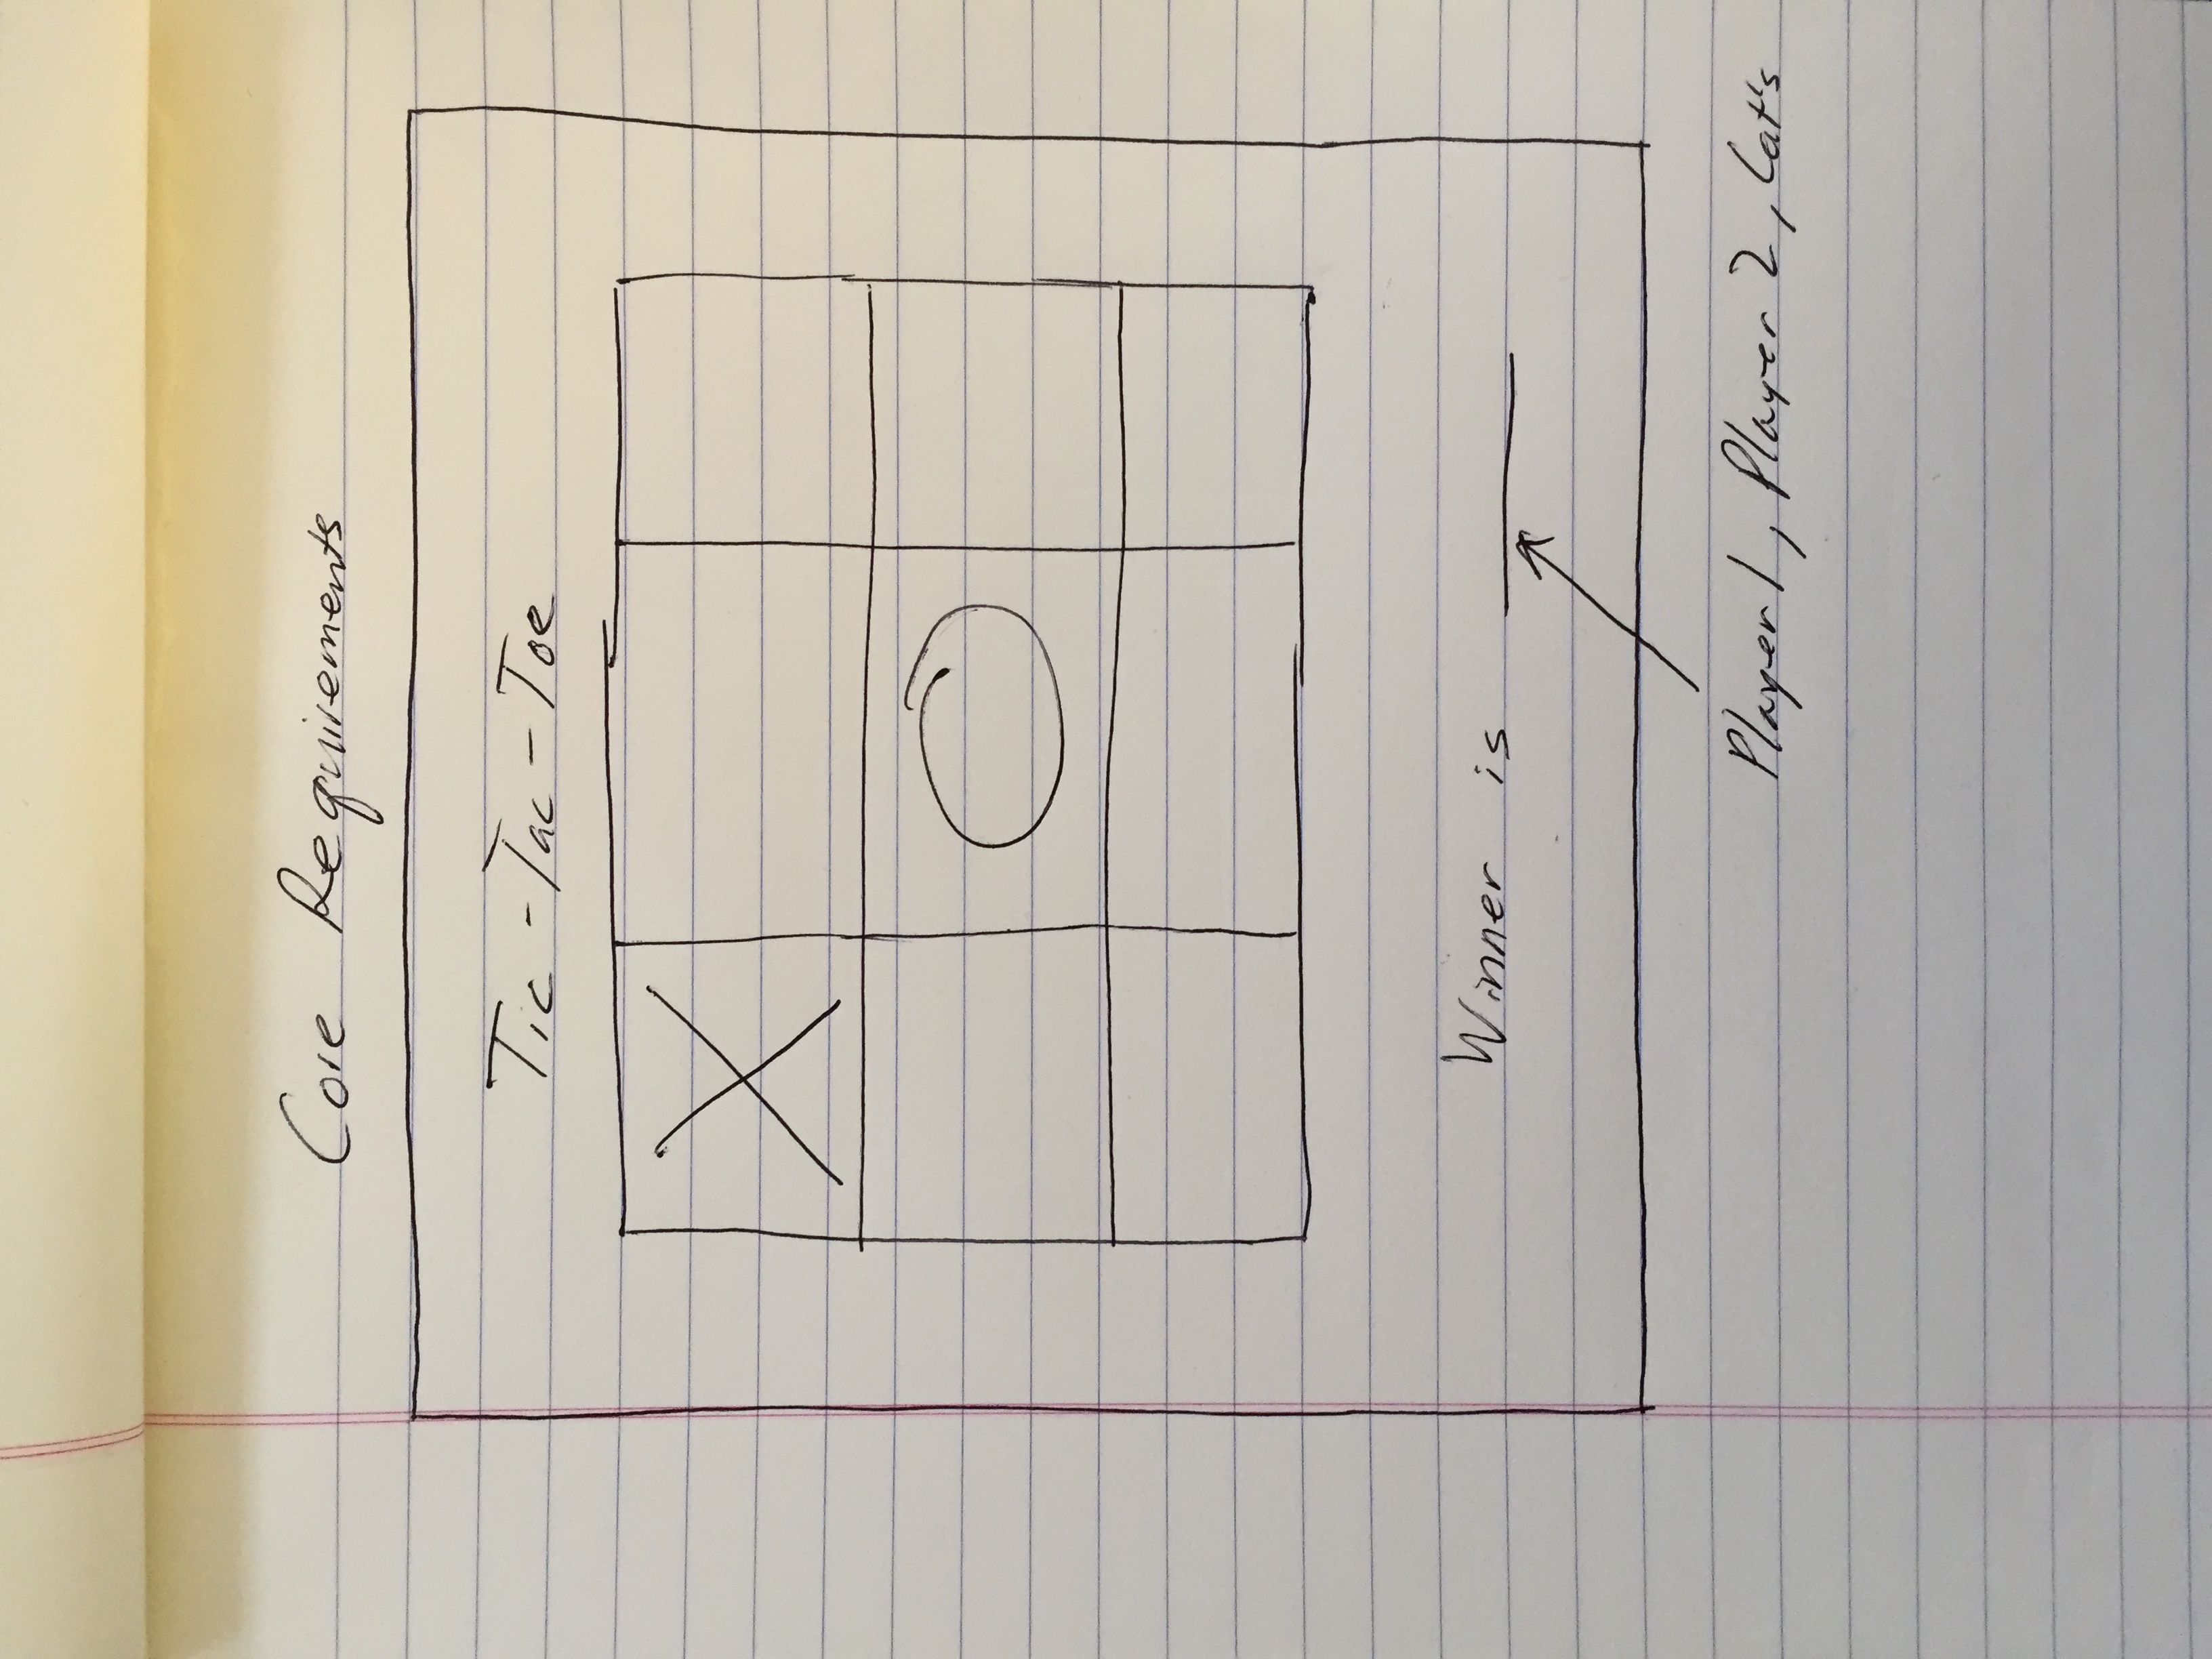 Core Requirements
Tic-Tac-Toe
X
O
Winner is ____
Player 1, Player 2, Cat's